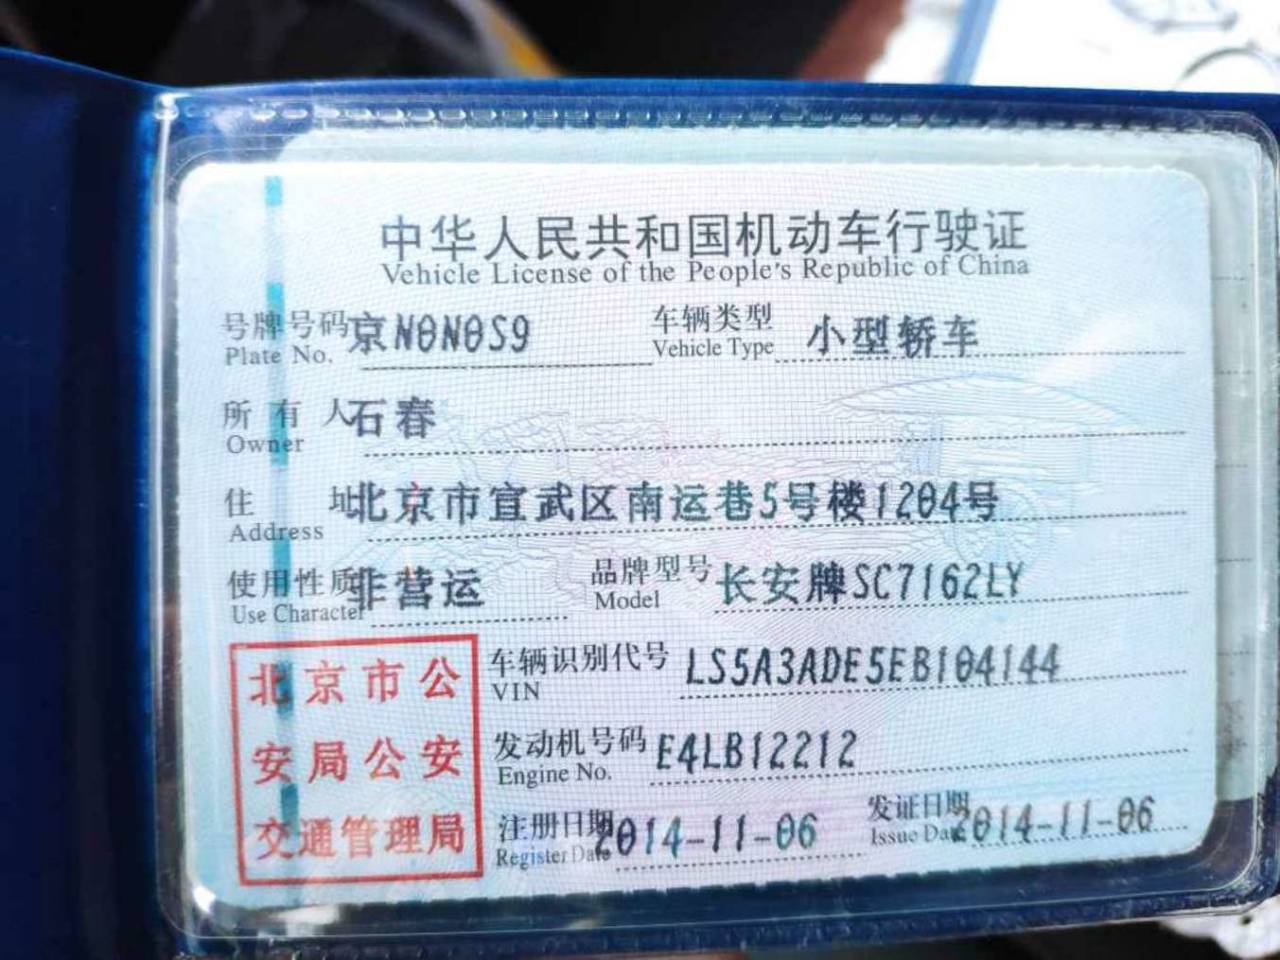 中华人民共和国机动车行驶证
Vehicle License of the People's Republic of China
号牌号码 京N0N0S9 车辆类型 小型轿车
Plate No. Vehicle Type
所有人 石春
Owner
住址 北京市宣武区南运巷5号楼1204号
Address
使用性质 非营运 品牌型号 长安牌SC7162LY
Use Character Model
北京市公
安局公安
交通管理局
车辆识别代号 LS5A3ADE5EB104144
VIN
发动机号码 E4LB12212
Engine No.
注册日期 2014-11-06 发证日期 2014-11-06
Register Date Issue Date